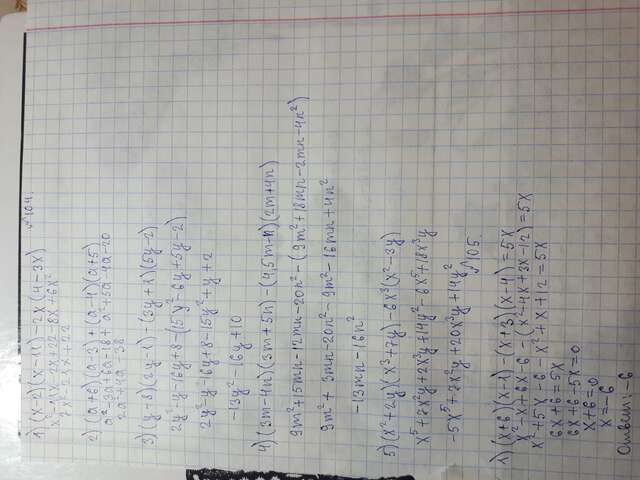 №104.
1) (x-2)(x-11)-2x(4-3x)
x²-11x-2x+22-8x+6x²
7x²-21x+22
2) (a+6)(a-3)+(a-4)(a+5)
a²-3a+6a-18+a²+5a-4a-20
2a²+4a-38
3) (y-8)(2y-1)-(3y+1)(5y-2)
2y²-y-16y+8-(15y²-6y+5y-2)
2y²-y-16y+8-15y²+y+2
-13y²-16y+10
4) (3m-4n)(3m+5n)-(4,5m-n)(2m+4n)
9m²+5mn-12mn-20n²-(9m²+18mn-2mn-4n²)
9m²+3mn-20n²-9m²-16mn+4n²
-13mn-16n²
5) (x²+2y)(x³+7y)-6x³(x²-3y)
x⁵+7x²y+2x³y+14y²-6x⁵+18x³y
-5x⁵+7x²y+20x³y+14y²
№105.
1) (x+6)(x-1)-(x+3)(x-4)=5x
x²-x+6x-6-(x²-4x+3x-12)=5x
x²+5x-6-x²+x+12=5x
6x+6=5x
6x+6-5x=0
x+6=0
x=-6
Ответ: -6